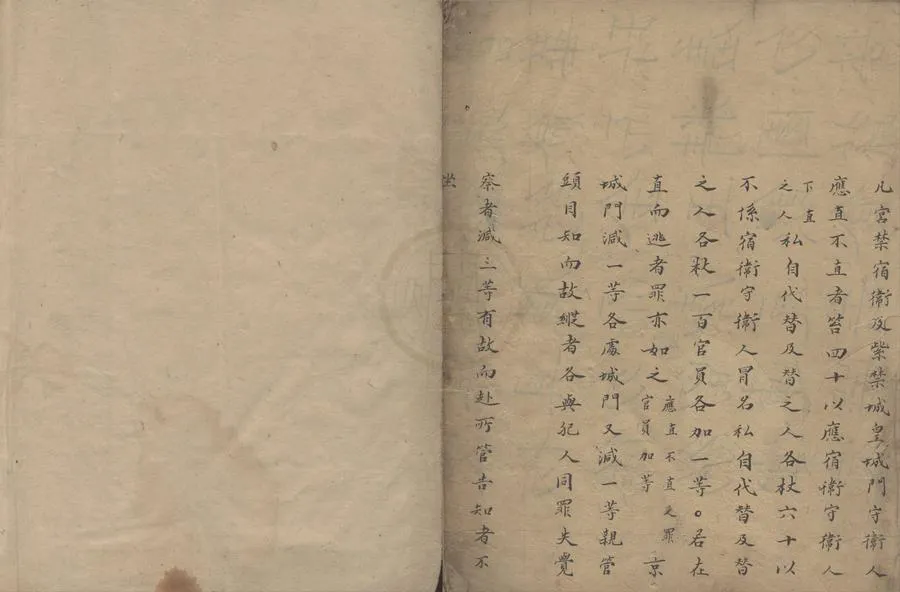 凡宮禁宿衛及紫禁城皇城門守衛人
應直不直者笞四十以應宿衛守衛人
下直
之人私自代替及替之人各杖六十以
不係宿衛守衛人冒名私自代替及替
之人各杖一百官員各加一等。若在
直而逃者罪亦如之應直不直之罪官員加等京
城門減一等各處城門又減一等親管
頭目知而故縱者各與犯人同罪失覺
察者減三等有故而赴所管告知者不
坐